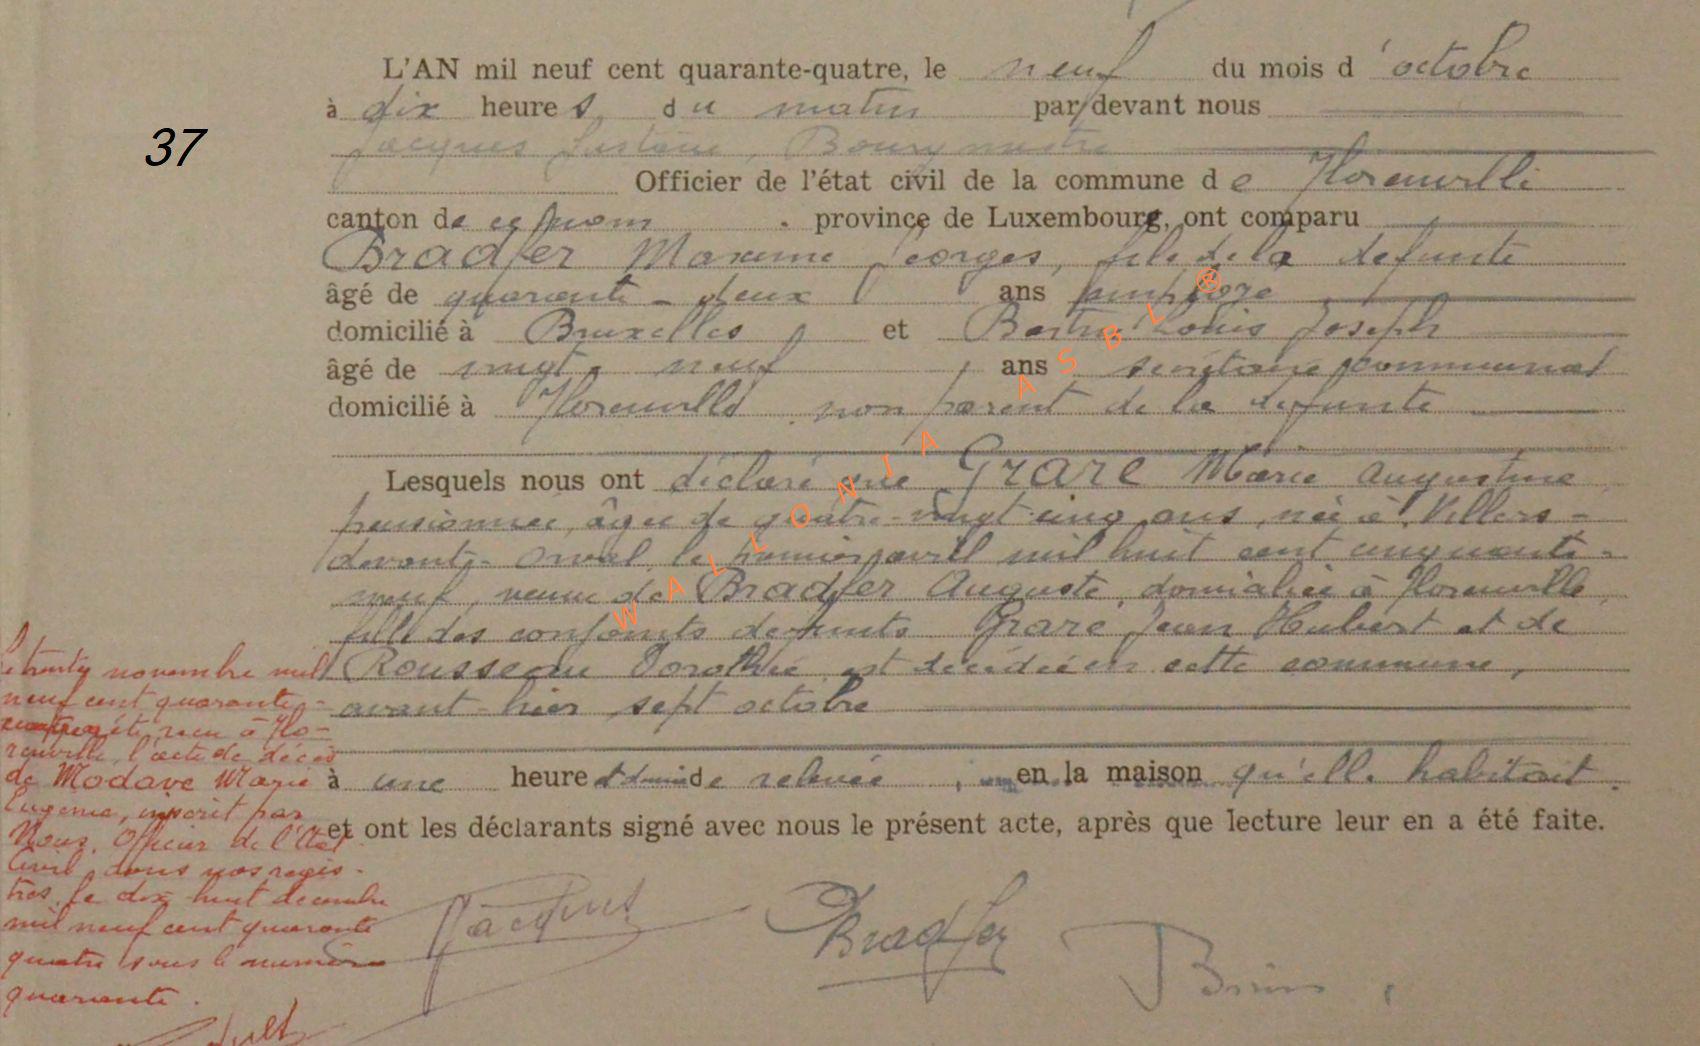 L'AN mil neuf cent quarante-quatre, le neuf du mois d'octobre
à dix heures, du matin par devant nous
37
Jacques Bourgmestre
Officier de l'état civil de la commune de Florenville
canton de ce nom. province de Luxembourg, ont comparu
Bradfer Maxime Georges, fils de la defunte
âgé de quarante-deux ans
domicilié à Bruxelles et Louis Joseph
âgé de vingt neuf, ans secrétaire communal
domicilié à Florenville non parent de la defunte
Lesquels nous ont déclaré que Grare Marie Augustine
pensionnée, âgée de quatre-vingt cinq ans, née à Villers-
devant-Orval, le premier avril mil huit cent cinquante-
neuf, veuve de Bradfer Auguste, domiciliée à Florenville,
fille des conjoints defunts Grare Jean Hubert et de
Rousseau Dorothée est décédée en cette commune,
avant-hier sept octobre
à une heure et demie de relevée, en la maison qu'elle habitait.
et ont les déclarants signé avec nous le présent acte, après que lecture leur en a été faite.
WALLONIA ASBL ®
Le trente novembre mil
neuf cent quarante-
été reçu à Flo-
renville, l'acte de décès
de Modave Marie
Eugenie, inscrit par
Nous, Officier de l'Etat
Civil, dans nos regis-
tres, le dix-huit decembre
mil neuf cent quarante
quatre sous le numéro
quarante.
Bradfer